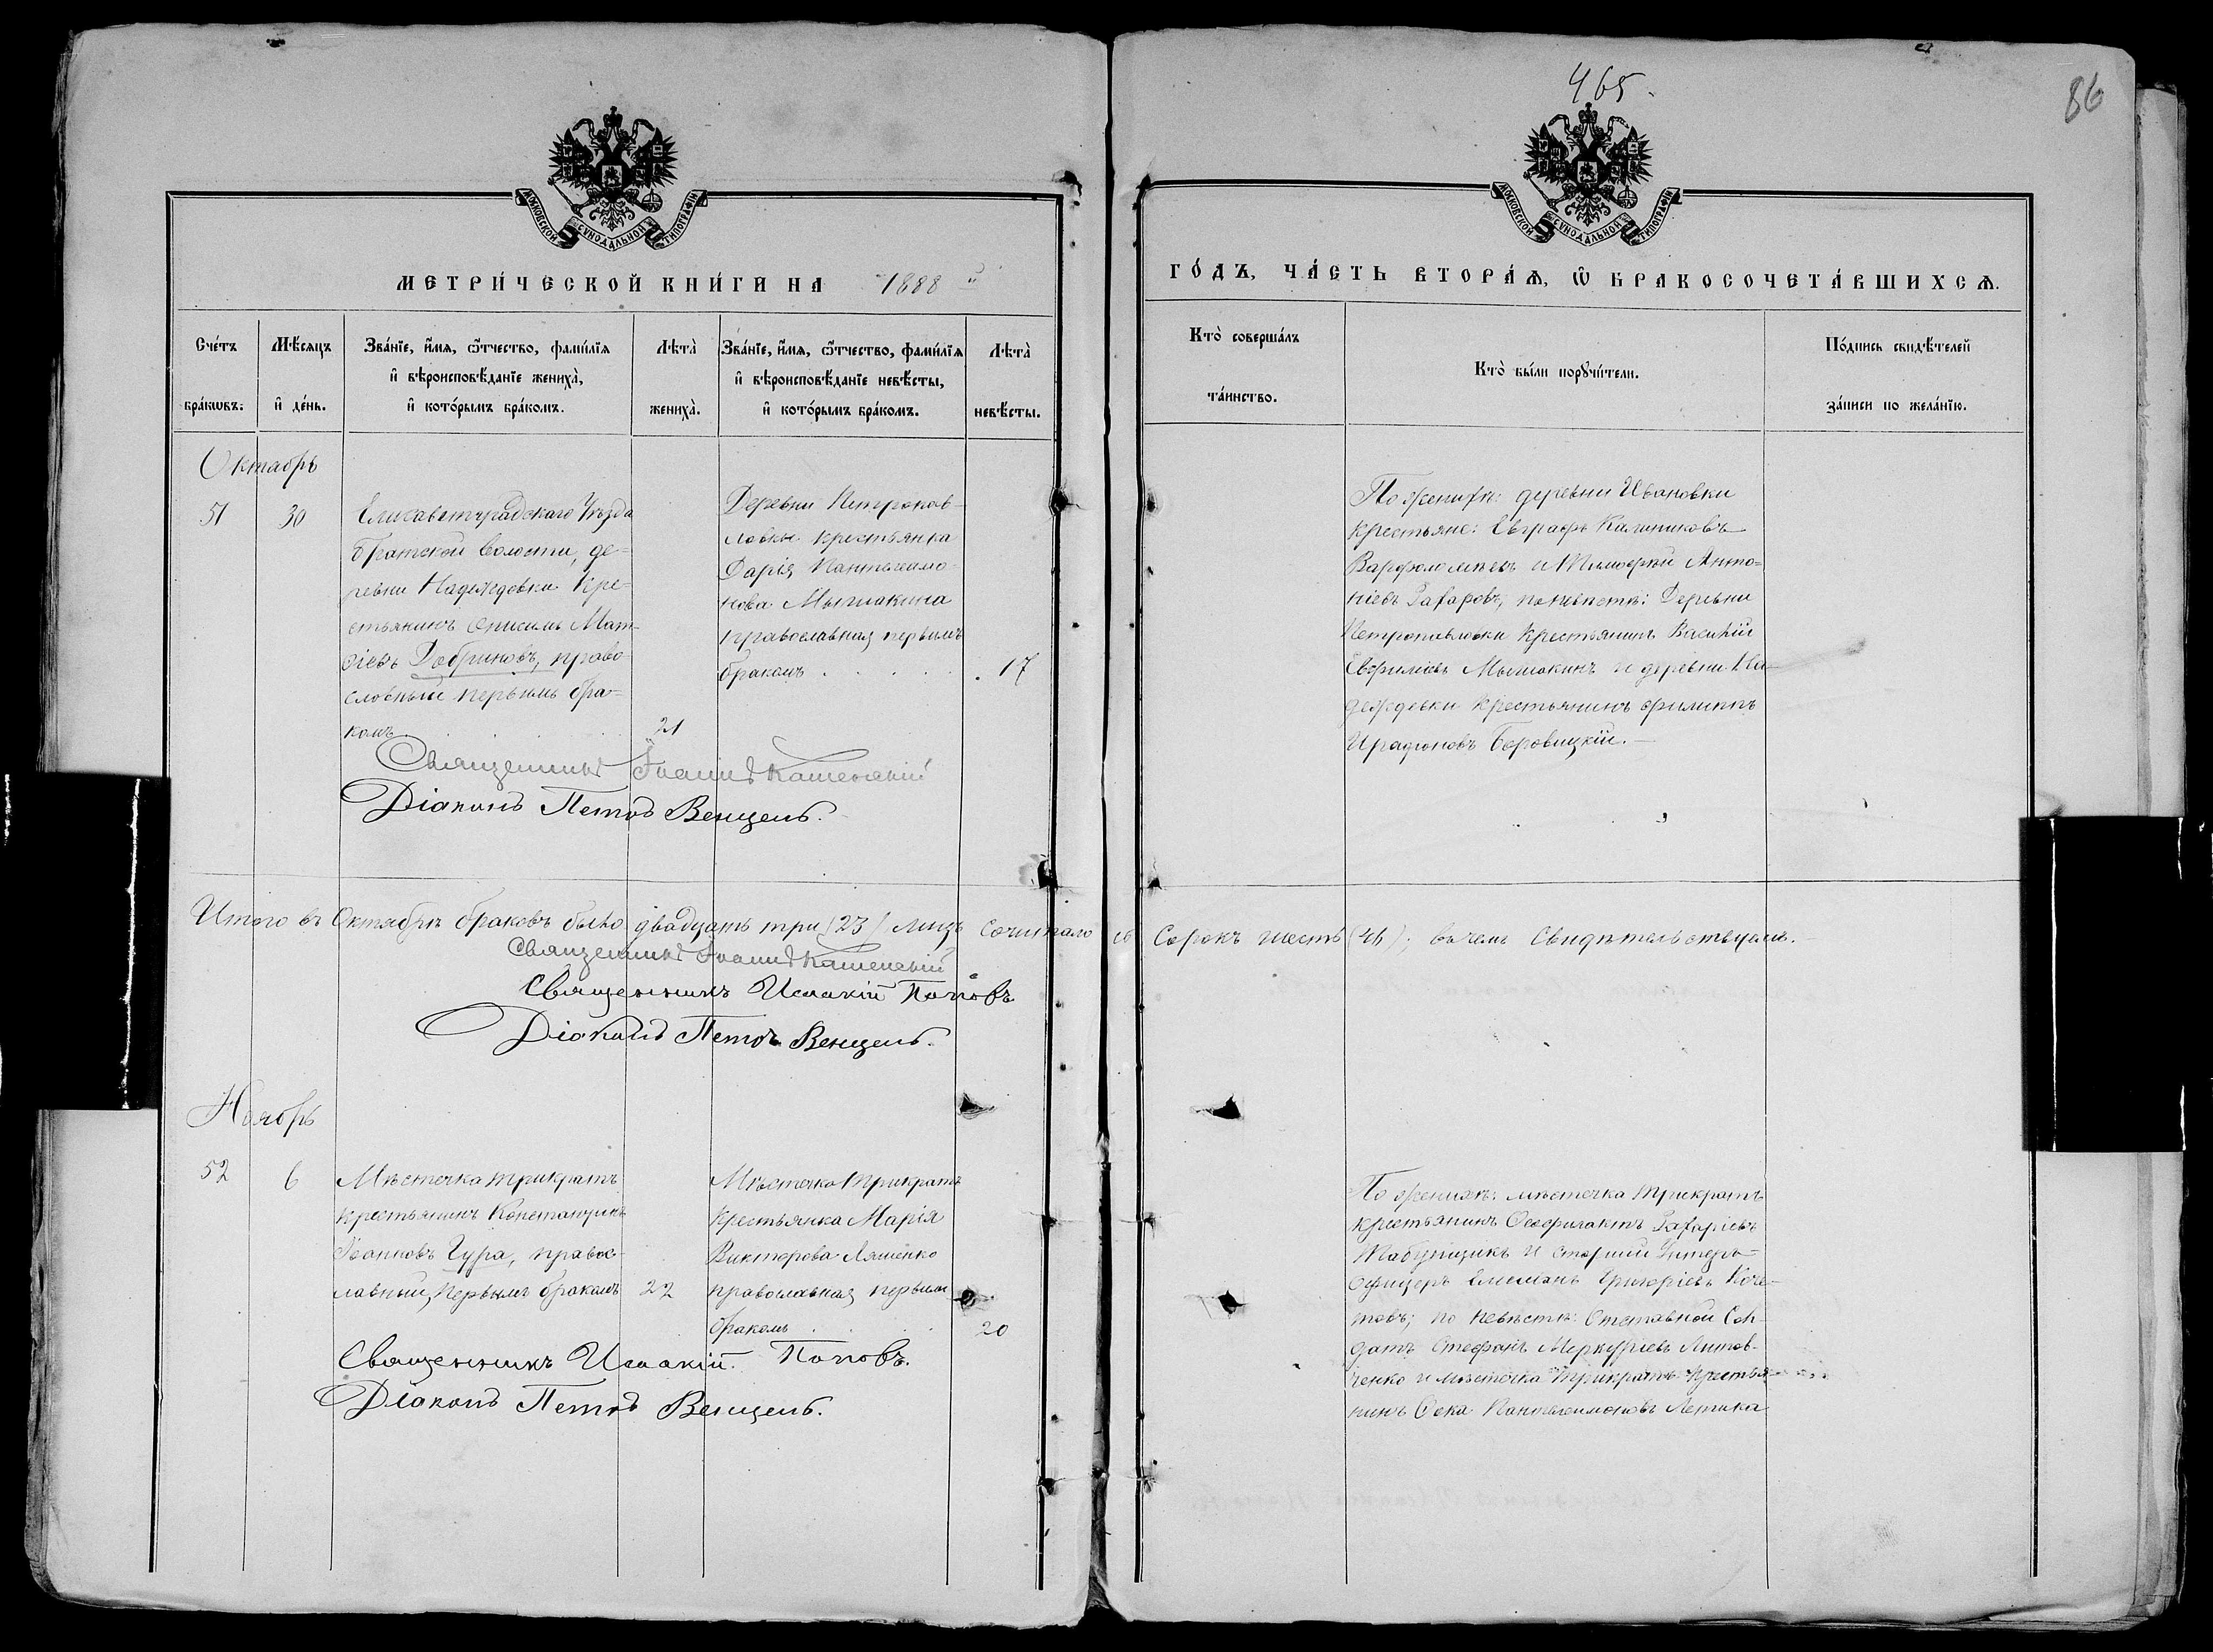 465.
86
МОСКОВСКОЙ СѴНОДАЛЬНОЙ ТИПОГРАФІИ
МОСКОВСКОЙ СѴНОДАЛЬНОЙ ТИПОГРАФІИ
МЕТРИ́ЧЕСКОЙ КНИ́ГИ НА 1888 й
ГО́ДЪ, ЧА́СТЬ ВТОРА́Я, Ѽ БРАКОСОЧЕТА́ВШИХСЯ.
Сче́тъ
бра́кѡвъ.
Мѣ́сяцъ
и҆ де́нь.
Зва́нїе, и҆́мя, ѻ҆́тчество, фами́лїя
и҆ вѣроисповѣ́данїе жениха̀,
и҆ кото́рымъ бра́комъ.
Лѣта̀
жениха̀.
Зва́нїе, и҆́мя, ѻ҆́тчество, фами́лїя
и҆ вѣроисповѣ́данїе невѣ́сты,
и҆ кото́рымъ бра́комъ.
Лѣта̀
невѣ́сты.
Кто̀ соверша́лъ
та́инство.
Кто̀ бы́ли порꙋчи́тели.
По́дпись свидѣ́телей
за́писи по жела́нїю.
Октябрь
51
30
Елисаветградскаго Уѣзда
Братской волости, де=
ревни Надеждовки Кре-
стьянинъ Онисимъ Мат-
ѳіевъ Добриновъ, право-
славный первымъ бра-
комъ
21
Деревни Петропав-
ловки крестьянка
Дарія Пантелеимо-
нова Мышакина
православная первымъ
бракомъ
17
По женихѣ: деревни Ивановки
крестьяне: Евграфъ Калиниковъ
Варфоломѣевъ и Тимоѳей Анто=
ніевъ Захаровъ, по невѣстѣ: Деревни
Петропавловки крестьянинъ Василій
Евфиміевъ Мышакинъ и деревни На-
деждовки крестьянинъ Филиппъ
Иродіоновъ Боровицкій.
Священникъ Іоаннъ Каменскій
Діаконъ Петръ Венцель.
Итого въ Октябрѣ браковъ было двадцать три (23) лицъ сочитало сь Сорокъ шесть (46); въ чемъ Свидѣтельствуемъ.
Священникъ Іоаннъ Каменскій
Священникъ Исаакій Поповъ
Діаконъ Петръ Венцель.
Ноябрь
52
6
Мѣстечка Трикратъ
крестьянинъ Константинъ
Іоанновъ Чура, правос-
лавный, первымъ бракомъ
22
Мѣстечка Трикратъ
крестьянка Марія
Викторова Ляшенко
православная первымъ
бракомъ
20
По женихѣ: мѣстечка Трикратъ
крестьянинъ Ѳеофилактъ Захаріевъ
Табунщикъ и старшій Унтеръ-
Офицеръ Емеліанъ Григоріевъ Коче-
товъ; по невѣстѣ: Отставной Сол-
датъ Стефанъ Меркуріевъ Литов-
ченко и мѣстечка Трикратъ крестья-
нинъ Ѳека Пантелеимоновъ Летика
Священникъ Исаакій Поповъ.
Діаконъ Петръ Венцель.